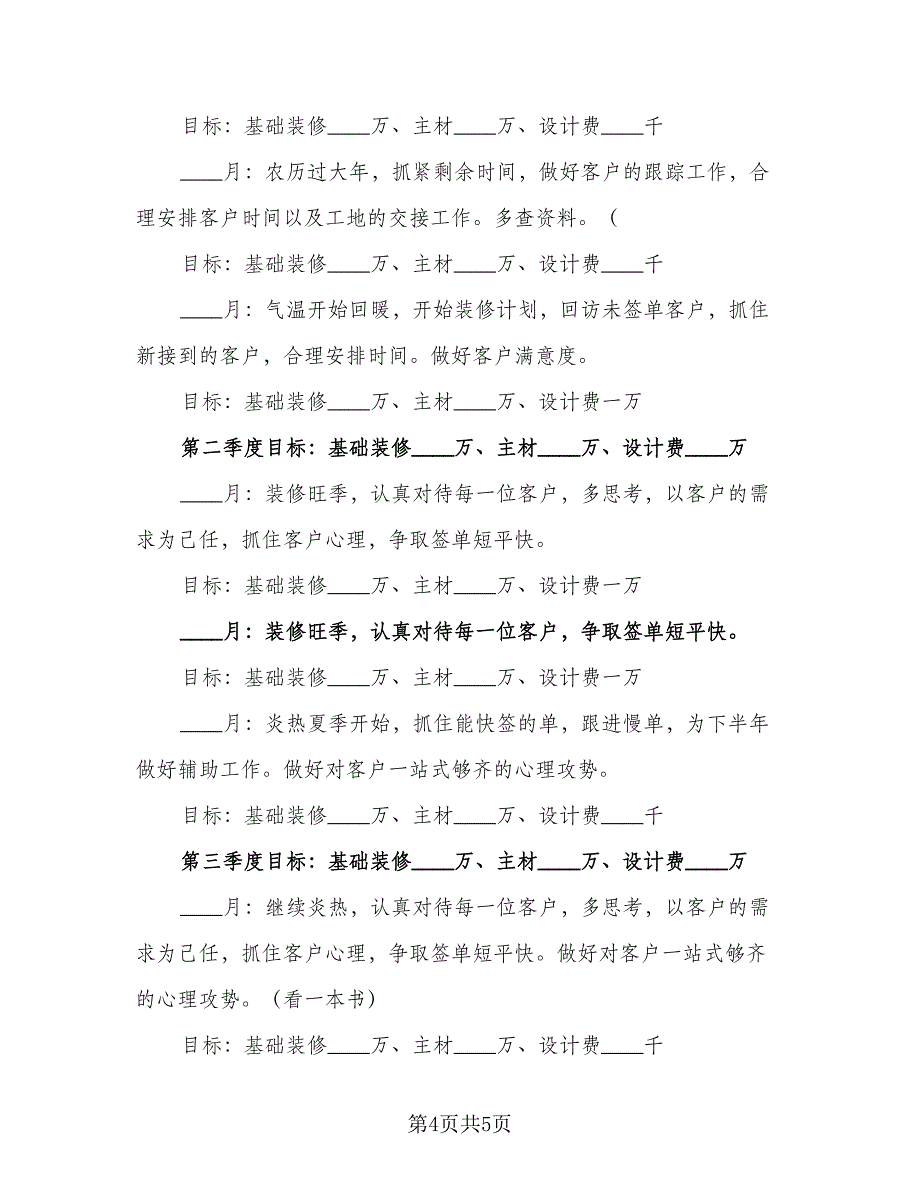 目标：基础装修____万、主材____万、设计费____千
____月：农历过大年，抓紧剩余时间，做好客户的跟踪工作，合
理安排客户时间以及工地的交接工作。多查资料。（
目标：基础装修____万、主材____万、设计费____千
____月：气温开始回暖，开始装修计划，回访未签单客户，抓住
新接到的客户，合理安排时间。做好客户满意度。
目标：基础装修____万、主材____万、设计费一万
第二季度目标：基础装修____万、主材____万、设计费____万
____月：装修旺季，认真对待每一位客户，多思考，以客户的需
求为己任，抓住客户心理，争取签单短平快。
目标：基础装修____万、主材____万、设计费一万
____月：装修旺季，认真对待每一位客户，争取签单短平快。
目标：基础装修____万、主材____万、设计费一万
____月：炎热夏季开始，抓住能快签的单，跟进慢单，为下半年
做好辅助工作。做好对客户一站式够齐的心理攻势。
目标：基础装修____万、主材____万、设计费____千
第三季度目标：基础装修____万、主材____万、设计费____万
____月：继续炎热，认真对待每一位客户，多思考，以客户的需
求为己任，抓住客户心理，争取签单短平快。做好对客户一站式够齐
的心理攻势。（看一本书）
目标：基础装修____万、主材____万、设计费____千
第4页共5页